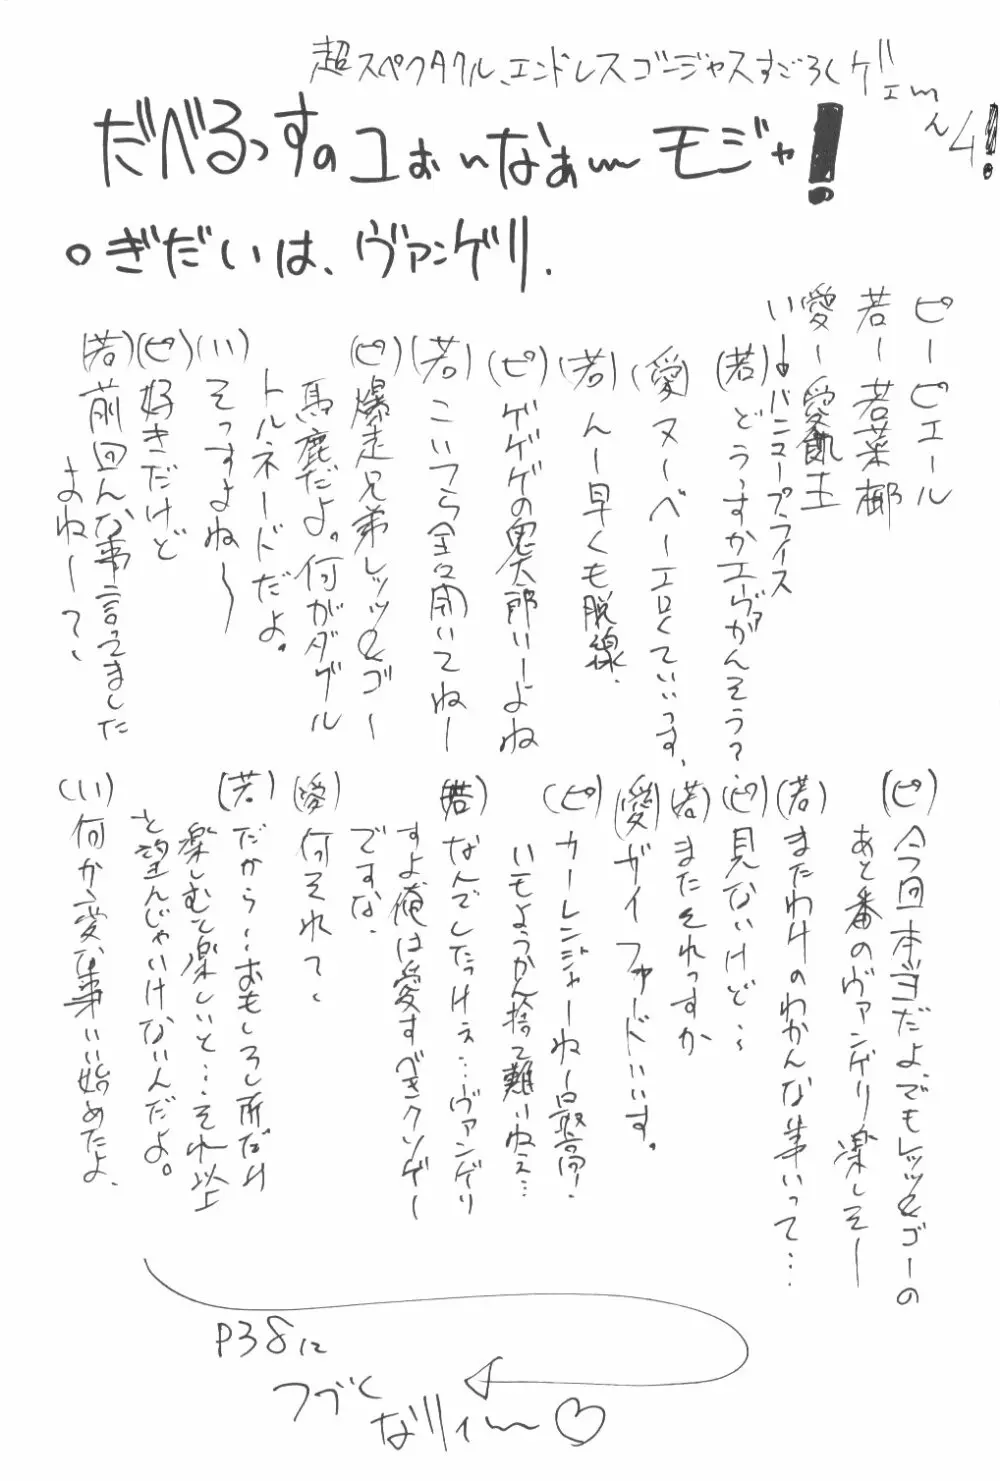 超スペクタクル、エンドレスゴージャスすごろくゲェーム4!
だべるっすの
なぁーモジャ!
○ぎだいは、ヴァンゲリ.
ピーピエール
若ー若菜椰
愛ー愛飢王
い→バニープライス
(若)どうっすかエヴァがんそう?
(愛)ヌーベーエロくていいっす、
(若)んー早くも脱線.
(ピ)ゲゲゲの鬼太郎いーよね
(若)こいつら全々聞いてねー
(ピ)爆走兄弟レッツ&ゴー
馬鹿だよ。何がダブル
トルネードだよ。
(い)そっすよね〜
(ピ)好きだけど
(若)前回んな事言ってました
よねーて、
(ピ)今回本当だよ、でもレッツ&ゴーの
あと番のヴァンゲリ楽しそー
(若)またわけのわかんな事いって…
(ピ)見ないけど…
(若)またそれっすか
(愛)ガイファードいいす。
(ピ)カーレンジャーねー最高!
いもようかん捨て難いねぇ…
(若)なんでしたっけぇ…ヴァンゲリ
すよ俺は愛すべきクソゲー
ですな、
(愛)何それて、
(若)だから…おもしろし所だけ
楽しむて楽しいと…それ以上
を望んじゃいけないんだよ。
(い)何か変な事いい始めたよ、
P38に
つづく
なりィー♡